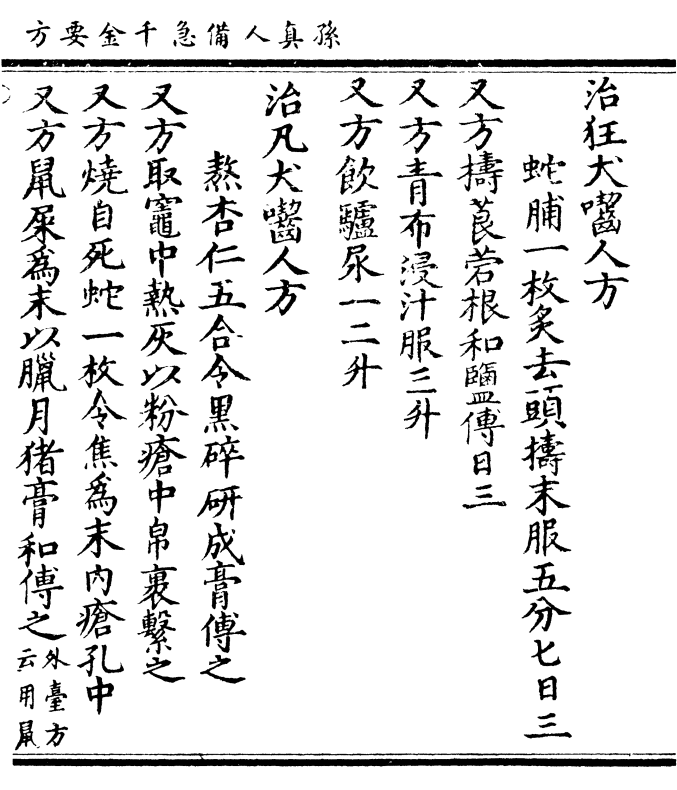 孫真人備急千金要方
治狂犬囓人方
蛇脯一枚炙去頭擣末服五分七日三
又方擣莨菪根和鹽傅日三
又方青布浸汁服三升
又方飲驢尿一二升
治凡犬囓人方
熬杏仁五合令黑碎研成膏傅之
又方取竈中熱灰以粉瘡中帛裹繫之
又方燒自死蛇一枚令焦爲末內瘡孔中
又方鼠屎爲末以臘月猪膏和傅之外臺方
云用鼠